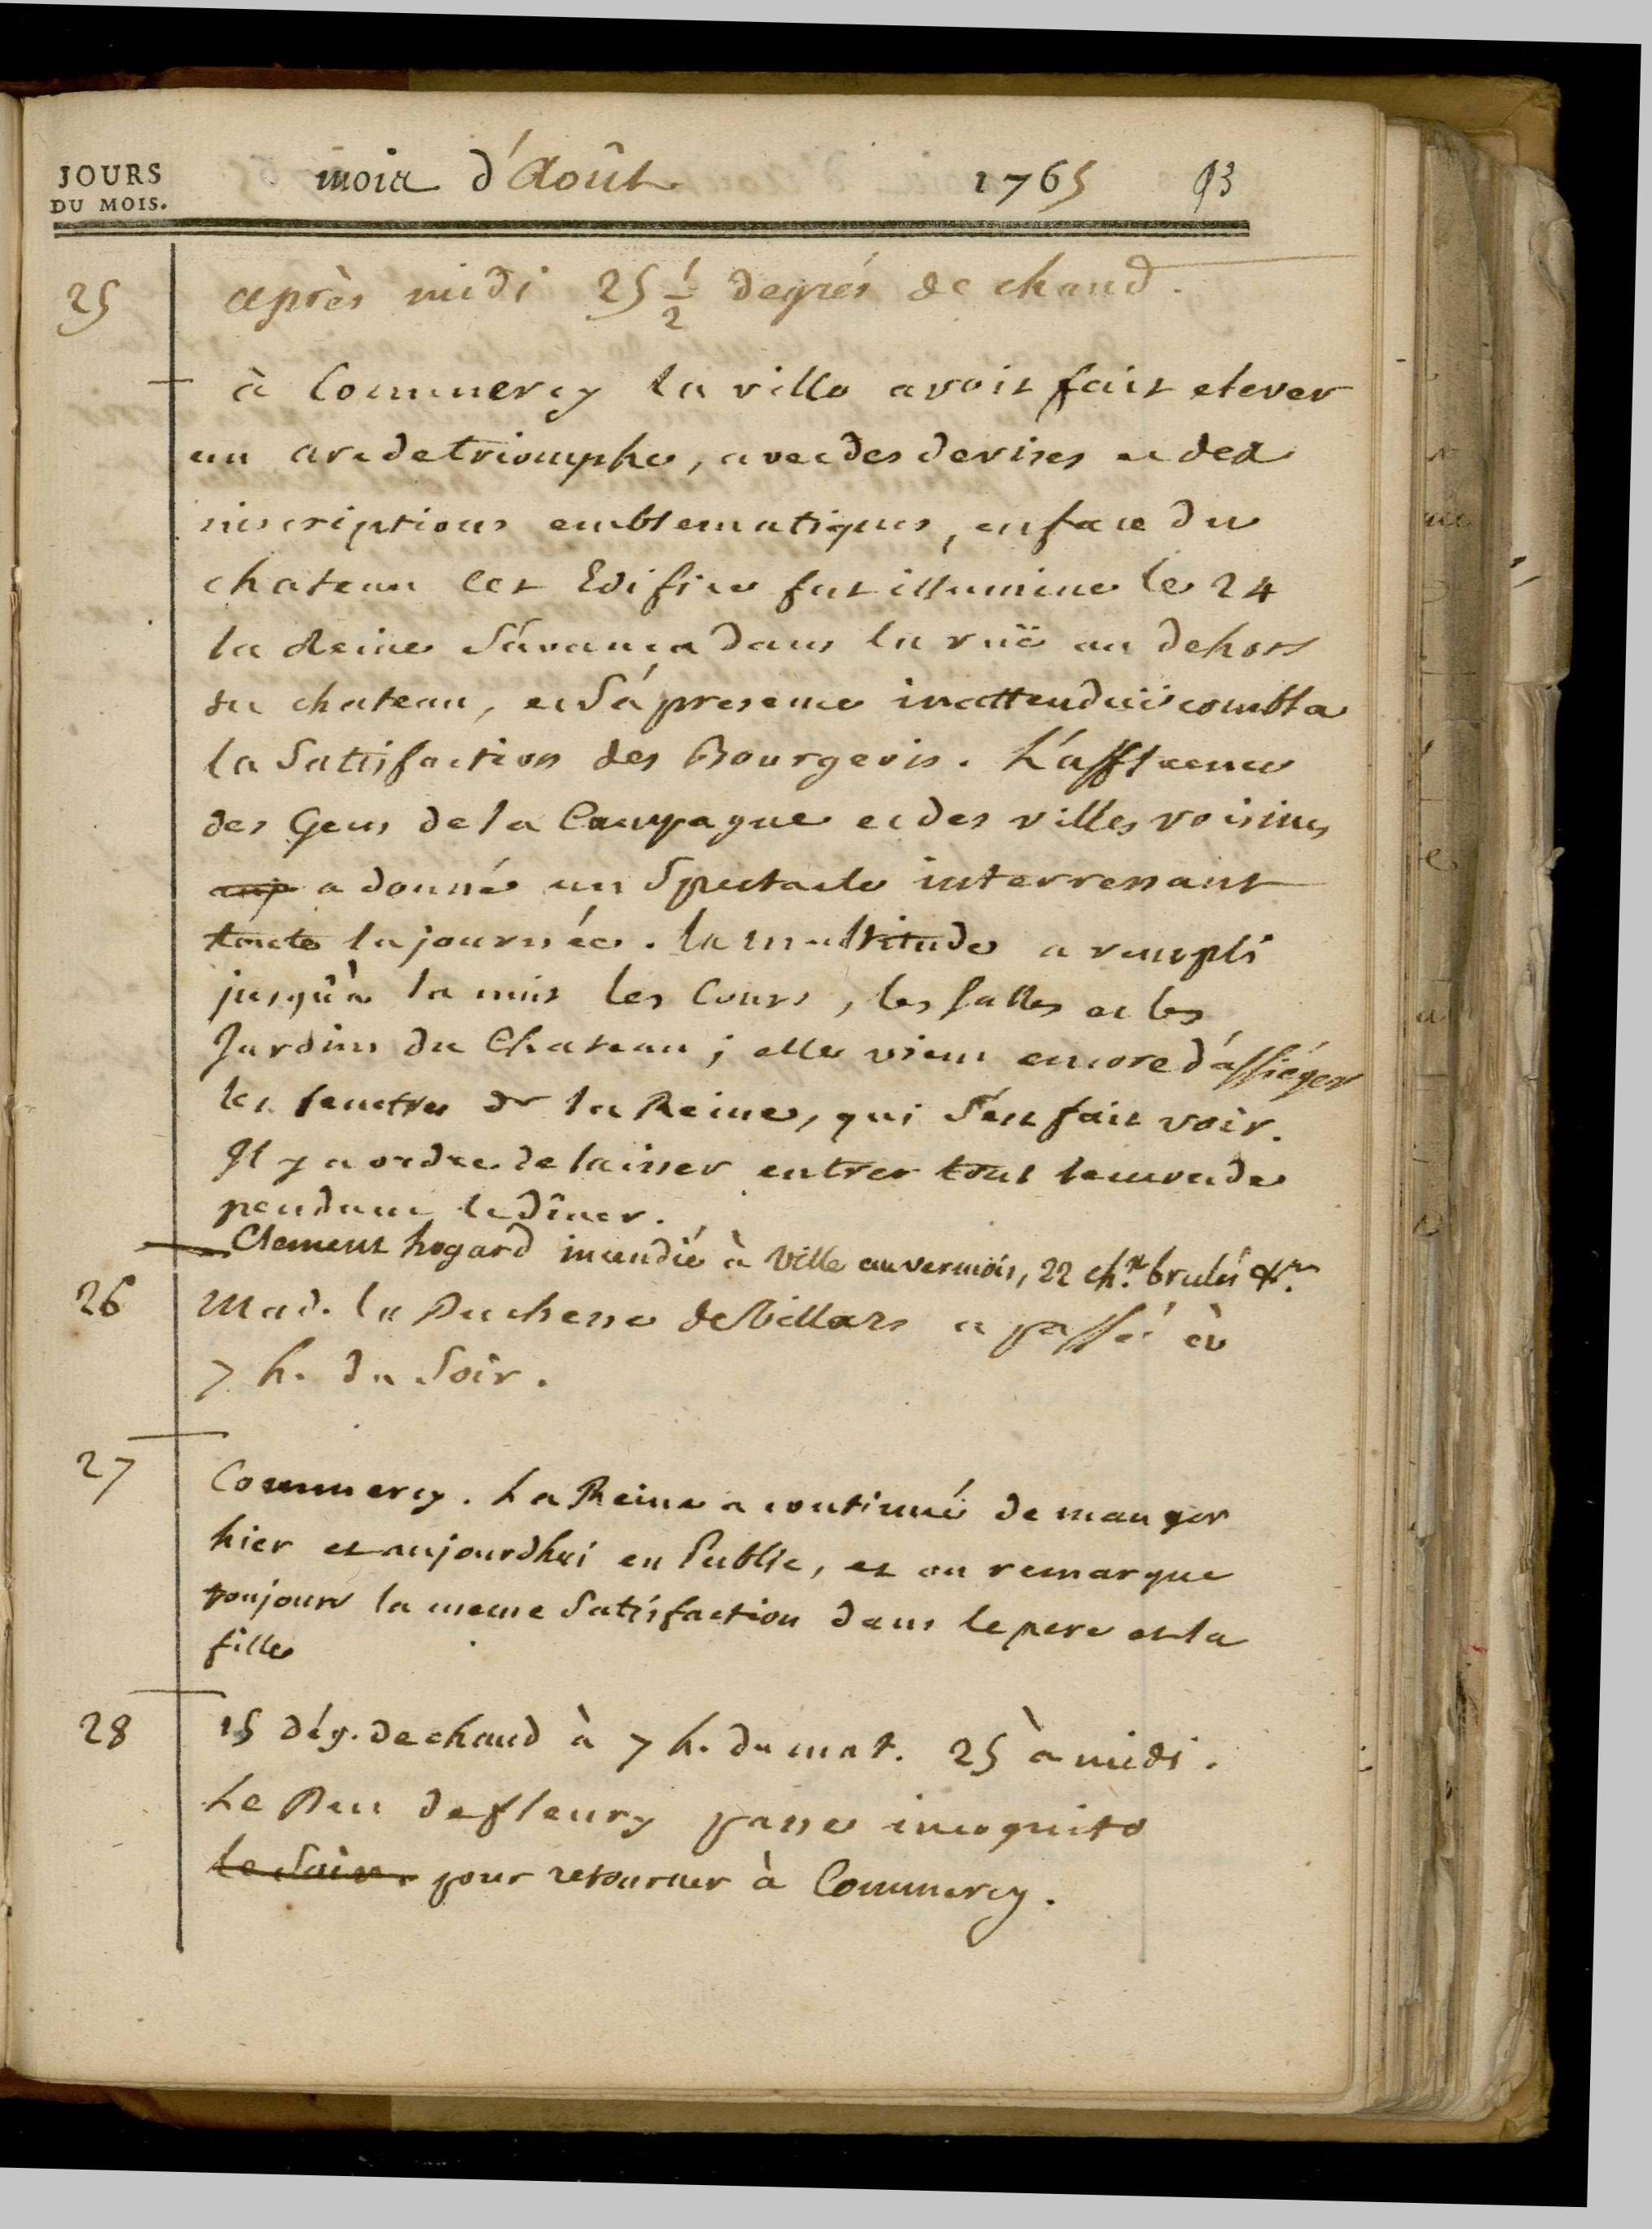 JOURS
DU MOIS.
mois d'Août 1765 93
25 après midi 25 1/2 degrés de chaud.
à Commercy la ville avoit fait elever
un arc de triomphe, avec des devises et des
inscriptions emblematiques, en face du
chateau cet Edifice fut illumine le 24
la Reine s'avança dans la ruë au dehors
du chateau, et sa presence inattenduë combla
la satisfaction des Bourgeois. L'affluence
des Gens de la Campagne et des villes voisines
a donné un Spectacle interressant
toute la journée. la multitude a rempli
jusqu'à la nuit les Cours, les salles et les
Jardins du Chateau ; elle vient encore d'assiéger
les fenetres de la Reine, qui s'est fait voir.
Il y a ordre de laisser entrer tout le monde
pendant le dîner.
Clement hogard incendié à Ville en vermois, 22 ch.rs brulés &c.
26 Mad. la Duchesse de Villars a passé à
7 h. du soir.
27 Commercy. La Reine a continué de manger
hier et aujourdhui en Public, et on remarque
toujours la meme satisfaction dans le pere et la
fille
28 15 dég. de chaud à 7 h. du mat. 25 à midi.
Le Duc de fleury passe incognito
le soir. pour retourner à Commercy.